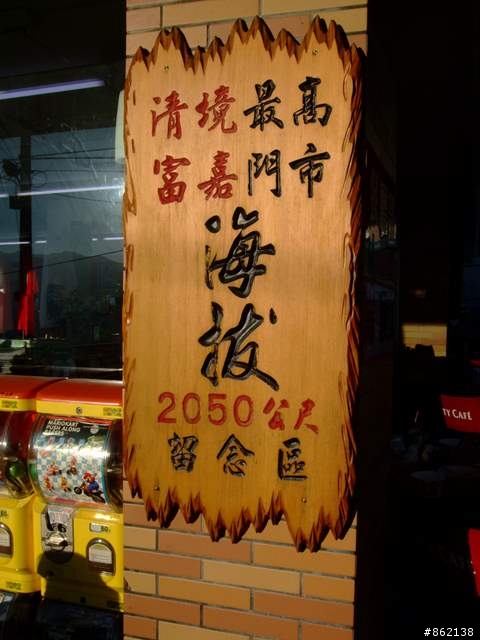 清境最高
富嘉門市
海拔
2050公尺
留念區
MARIOKART
PUSH ALONG
TY CAFÉ
#862138